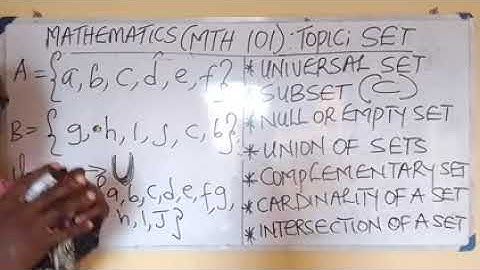 MATHEMATICS (MTH 101): TOPIC; SET
A = {a, b, c, d, e, f}
B = {g, h, I, J, c, b}
U
a, b, c, d, e, f g,
h, I, J}
* UNIVERSAL SET
SUBSET (⊂)
* NULL OR EMPTY SET
* UNION OF SETS
* COMPLEMENTARY SET
* CARDINALITY OF A SET
* INTERSECTION OF A SET